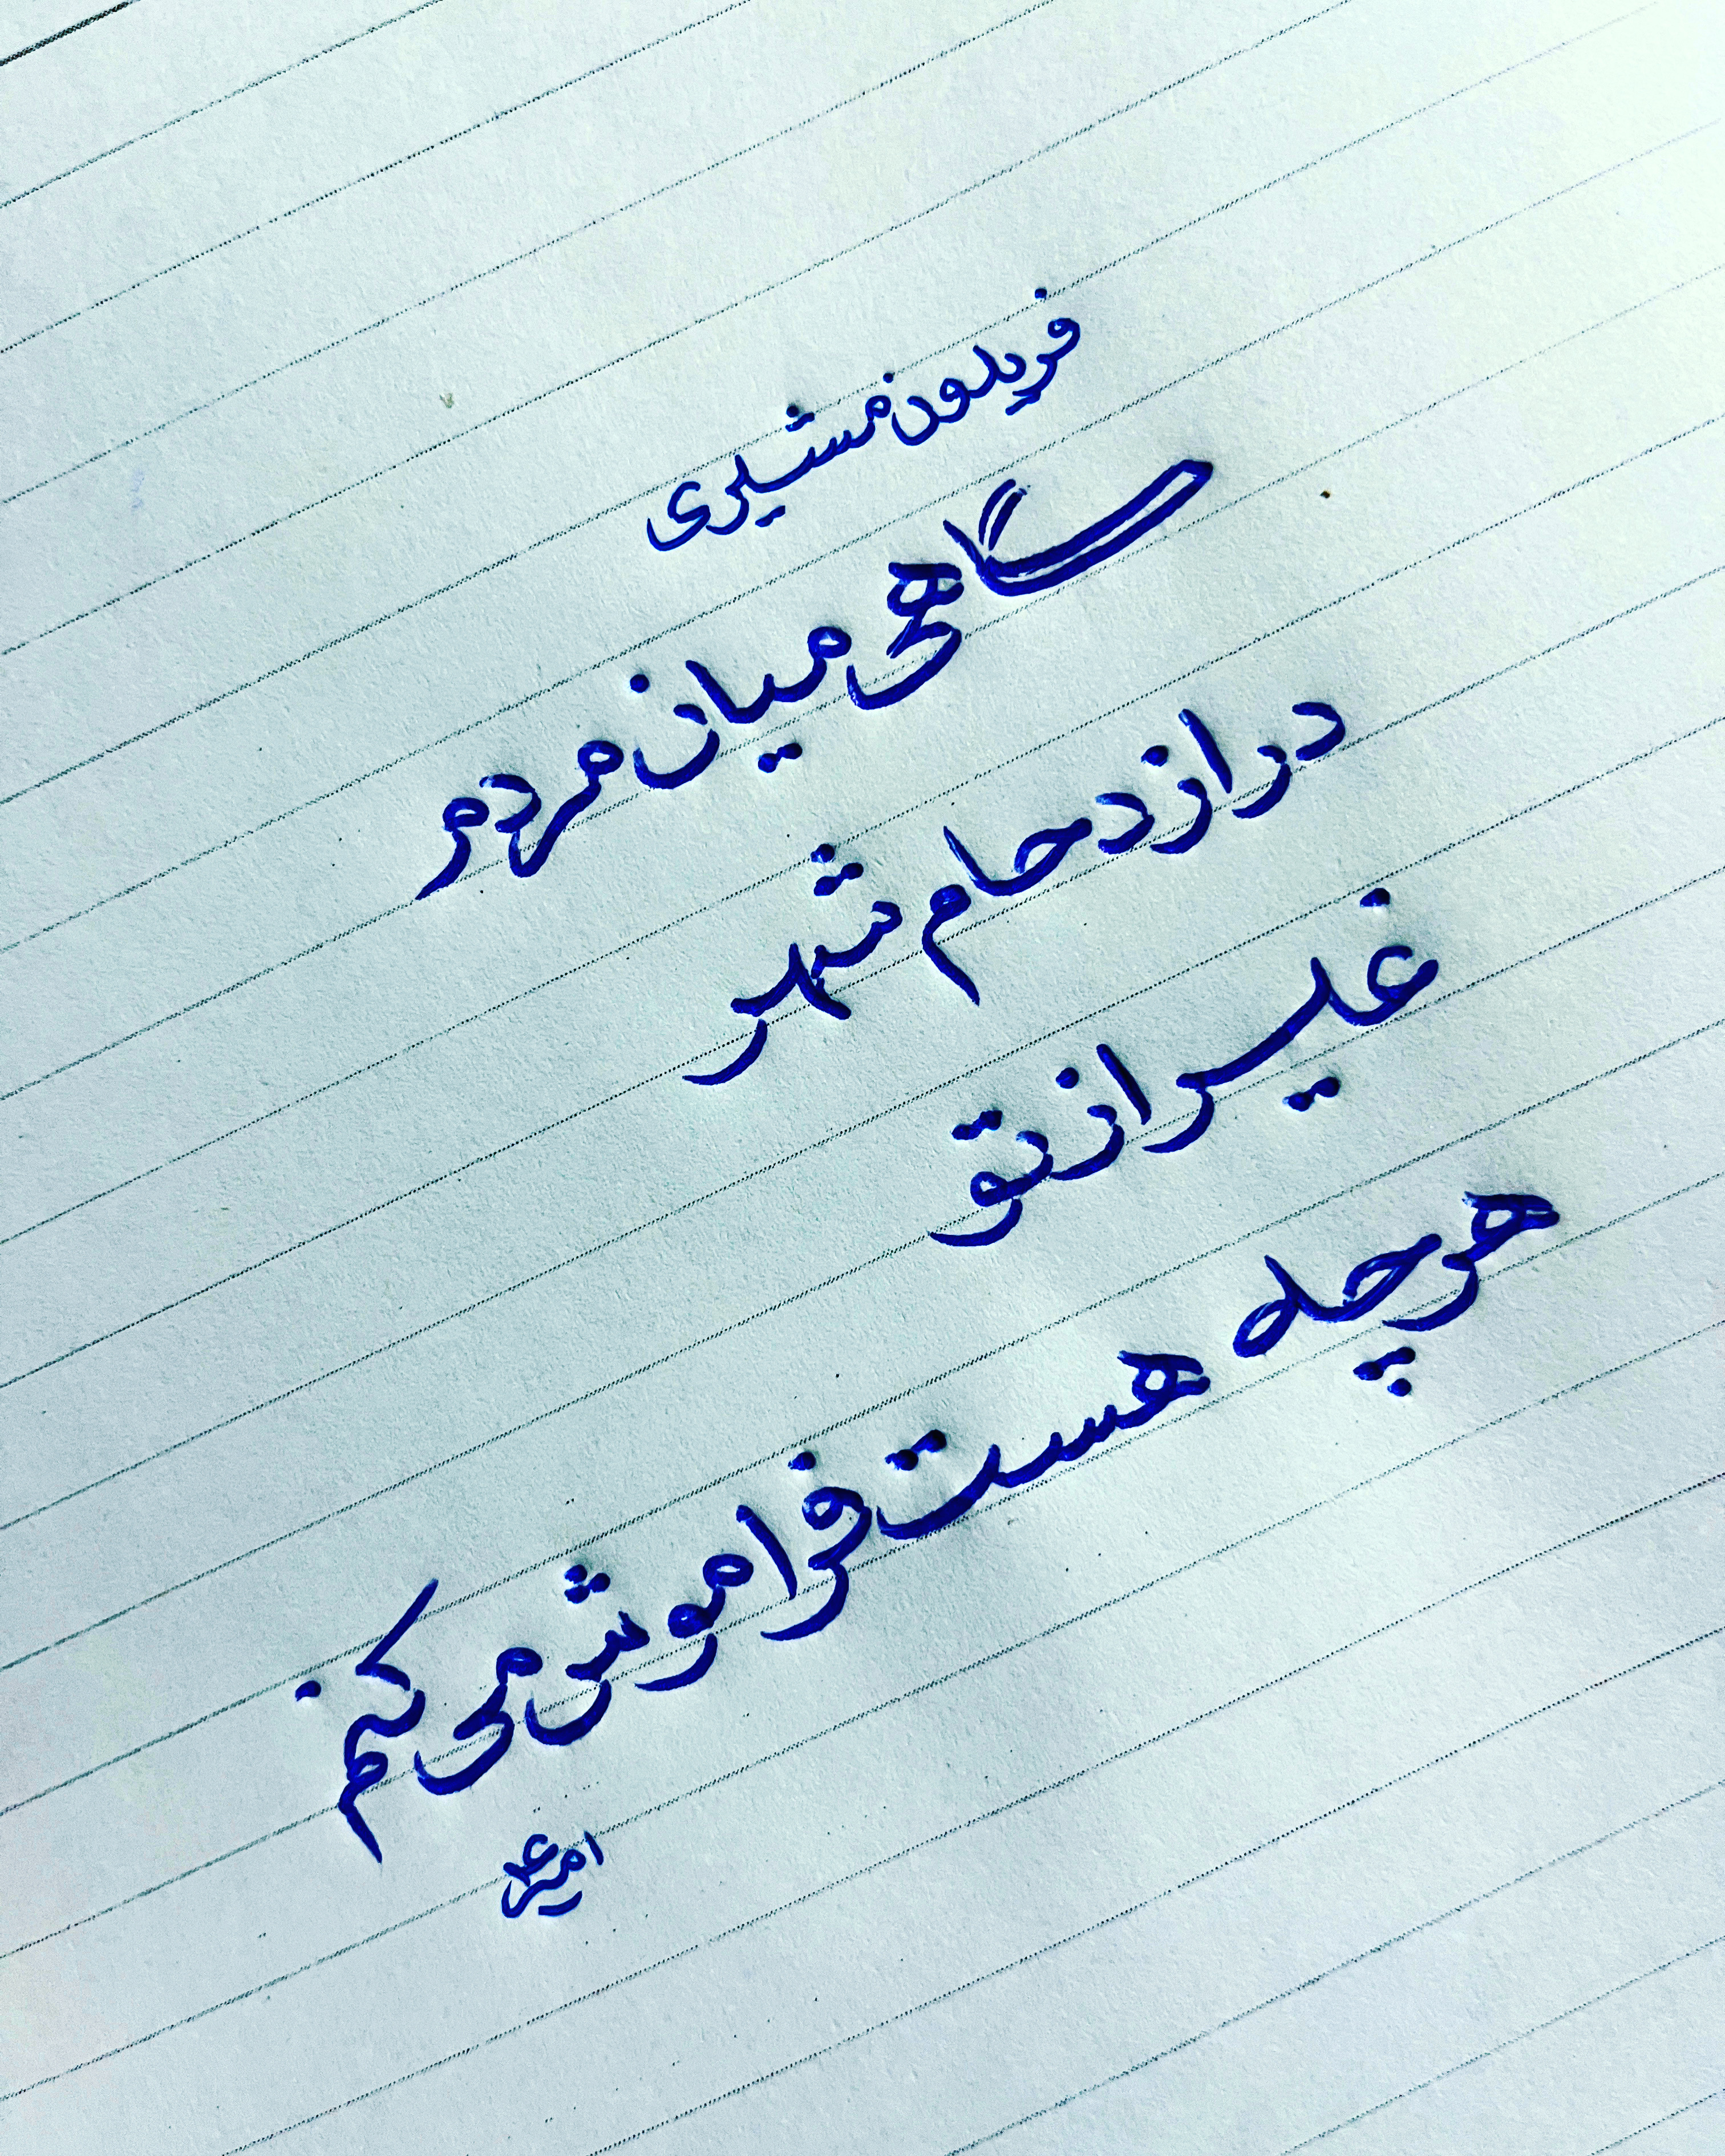 فریدون مشیری
گاهی میان مردم
در ازدحام شهر
غیر از تو
هر چه هست فراموش می کنم